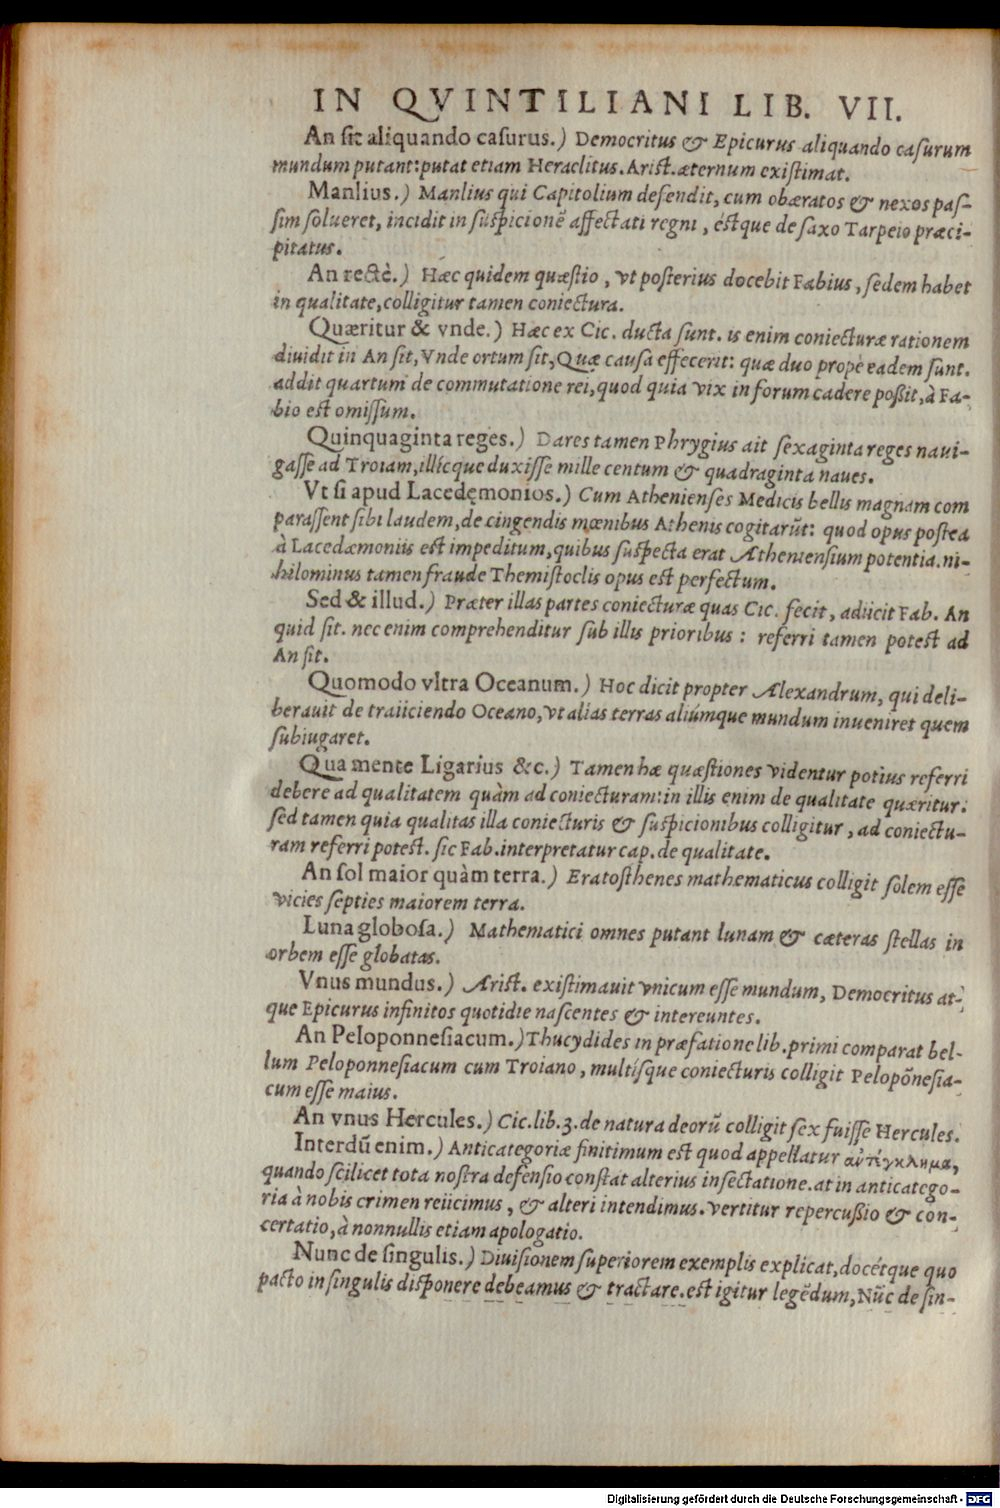 IN QVINTILIANI LIB. VII.
An sit aliquando casurus.) Democritus & Epicurus aliquando casurum
mundum putant: putat etiam Heraclitus. Arist. æternum existimat.
Manlius.) Manlius qui Capitolium defendit, cum obæratos & nexos pas-
sim solueret, incidit in suspicionē affectati regni, éstque de saxo Tarpeio præci-
pitatus.
An rectè.) Hæc quidem quæstio, vt posterius docebit Fabius, sedem habet
in qualitate, colligitur tamen coniectura.
Quæritur & vnde.) Hæc ex Cic. ducta sunt. is enim coniecturæ rationem
diuidit in An sit, Vnde ortum sit, Quæ causa effecerit: quæ duo propè eadem sunt.
addit quartum de commutatione rei, quod quia vix in forum cadere poßit, à Fa-
bio est omissum.
Quinquaginta reges.) Dares tamen Phrygius ait sexaginta reges naui-
gasse ad Troiam, illícque duxisse mille centum & quadraginta naues.
Vt si apud Lacedęmonios.) Cum Athenienses Medicis bellis magnam com
parassent sibi laudem, de cingendis mœnibus Athenis cogitarūt: quod opus postea
à Lacedæmoniis est impeditum, quibus suspecta erat Atheniensium potentia. ni-
hilominus tamen fraude Themistoclis opus est perfectum.
Sed & illud.) Præter illas partes coniecturæ quas Cic. fecit, adiicit Fab. An
quid sit. nec enim comprehenditur sub illis prioribus: referri tamen potest ad
An sit.
Quomodo vltra Oceanum.) Hoc dicit propter Alexandrum, qui deli-
berauit de traiiciendo Oceano, vt alias terras aliúmque mundum inueniret quem
subiugaret.
Qua mente Ligarius &c.) Tamen hæ quæstiones videntur potius referri
debere ad qualitatem quàm ad coniecturam: in illis enim de qualitate quæritur:
sed tamen quia qualitas illa coniecturis & suspicionibus colligitur, ad coniectu-
ram referri potest. sic Fab. interpretatur cap. de qualitate.
An sol maior quàm terra.) Eratosthenes mathematicus colligit solem esse
vicies septies maiorem terra.
Luna globosa.) Mathematici omnes putant lunam & cæteras stellas in
orbem esse globatas.
Vnus mundus.) Arist. existimauit vnicum esse mundum, Democritus at-
que Epicurus infinitos quotidie nascentes & intereuntes.
An Peloponnesiacum.) Thucydides in præfatione lib. primi comparat bel-
lum Peloponnesiacum cum Troiano, multísque coniecturis colligit Pelopōnesia-
cum esse maius.
An vnus Hercules.) Cic. lib. 3. de natura deorū colligit sex fuisse Hercules.
Interdū enim.) Anticategoriæ finitimum est quod appellatur ἀντέγκλημα,
quando scilicet tota nostra defensio constat alterius insectatione. at in anticatego-
ria à nobis crimen reiicimus, & alteri intendimus. vertitur repercußio & con-
certatio, à nonnullis etiam apologatio.
Nunc de singulis.) Diuisionem superiorem exemplis explicat, docétque quo
pacto in singulis disponere debeamus & tractare. est igitur legēdum, Nūc de sin-
Digitalisierung gefördert durch die Deutsche Forschungsgemeinschaft - DFG